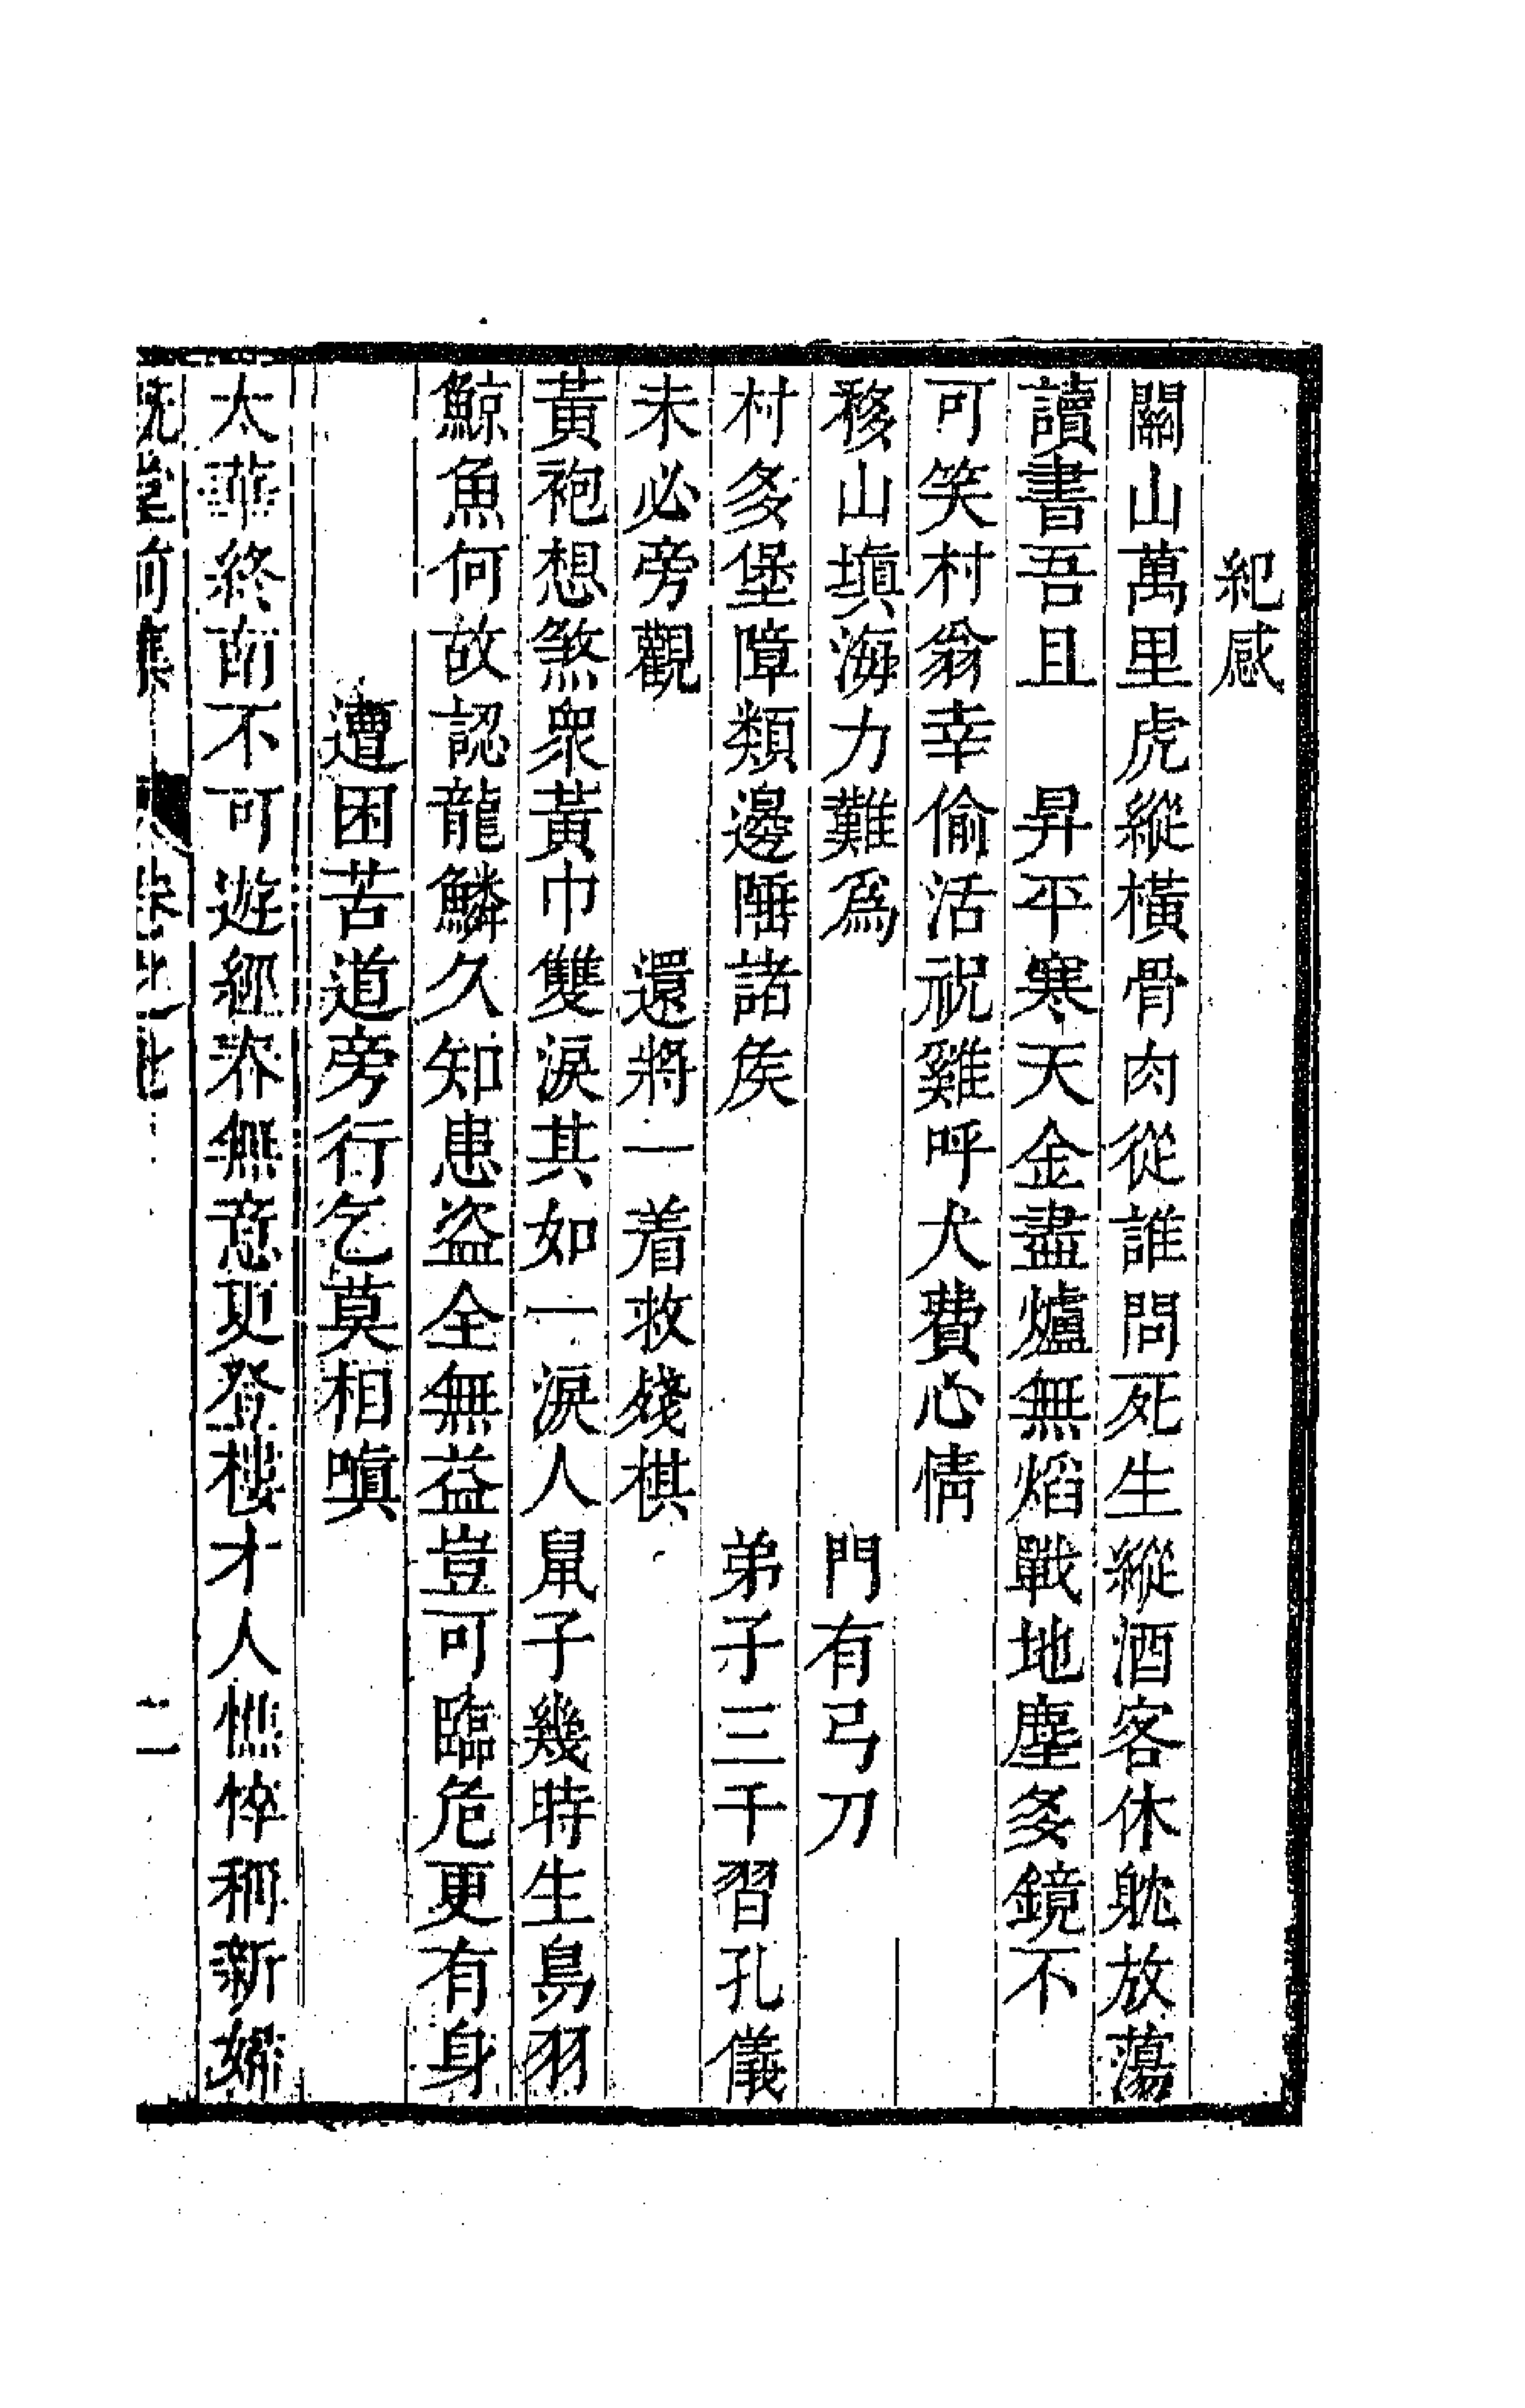 紀感
關山萬里虎縱橫骨肉從誰問死生縱酒客休躭放蕩
讀書吾且　昇平寒天金盡爐無焰戰地塵多鏡不
可笑村翁幸偷活祝雞呼犬費心情
移山塡海力難爲　門有弓刀
村多堡障類邊陲諸矦　弟子三千習孔儀
未必旁觀　還將一着救殘棋
黃袍想煞衆黃巾雙淚其如一淚人鼠子幾時生鳥羽
鯨魚何故認龍鱗久知患盗全無益豈可臨危更有身
遭困苦道旁行乞莫相嗔
太華終南不可遊經春無意更登樓才人憔悴稱新
堂集 卷之 二